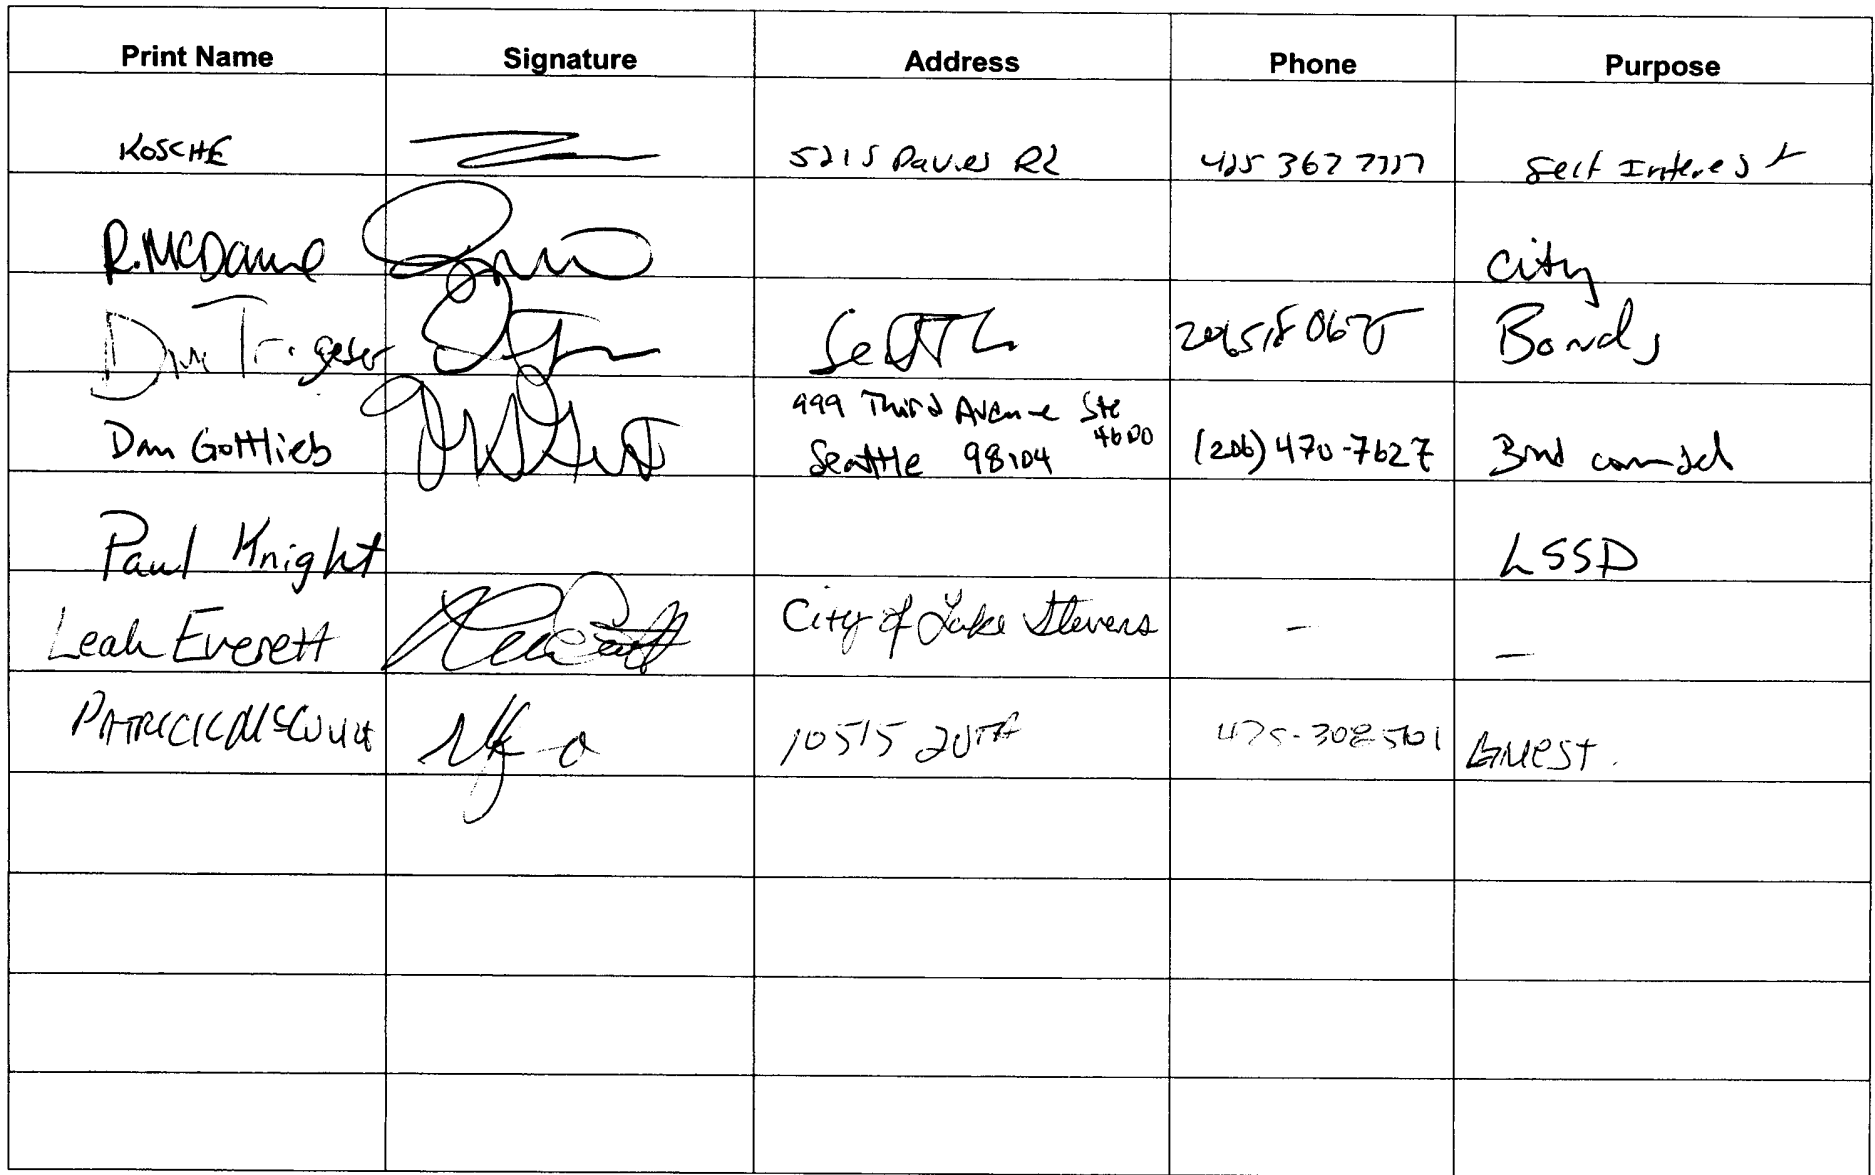 Print Name Signature Address Phone Purpose
KOSCHE 5215 Davies Rd 425 367 7777 Self Interest
R. McDaniel city
Dan Trigeser Seattle Bonds
Dan Gottlieb 999 Third Avenue Ste 4600
Seattle 98104 (206) 470-7627 Bond counsel
Paul Knight LSSD
Leah Everett City of Lake Stevens – –
PATRICK 10515 20TH Guest.